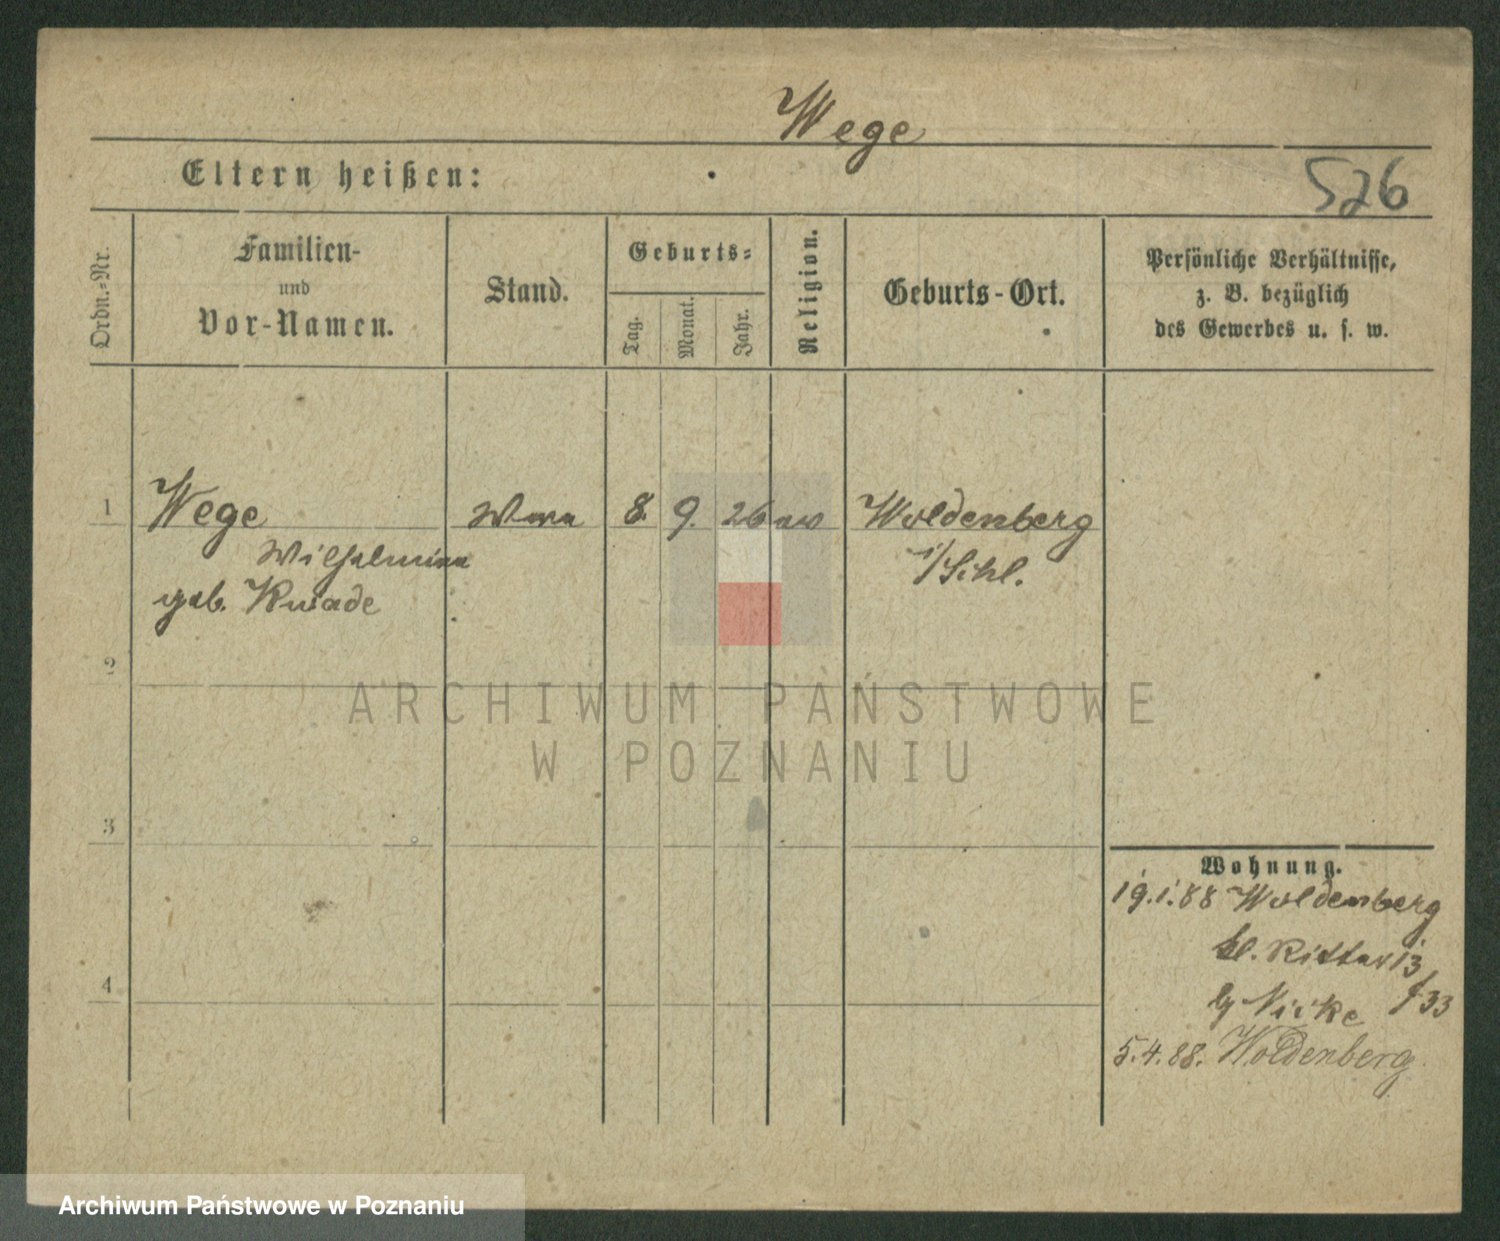 Wege
Eltern heißen:
526
Ordn.-Nr.
Familien-
und
Vor-Namen.
Stand.
Geburts-
Tag.
Monat.
Jahr.
Religion.
Geburts-Ort.
Persönliche Verhältnisse,
z. B. bezüglich
des Gewerbes u. s. w.
1 Wege 8. 9. 26 Woldenberg
Wilhelmine
geb. Kwade
2
3
4
Wohnung.
19.1.88 Woldenberg
kl. Ritter 13
33
5.4.88. Woldenberg
ARCHIWUM PAŃSTWOWE
W POZNANIU
Archiwum Państwowe w Poznaniu